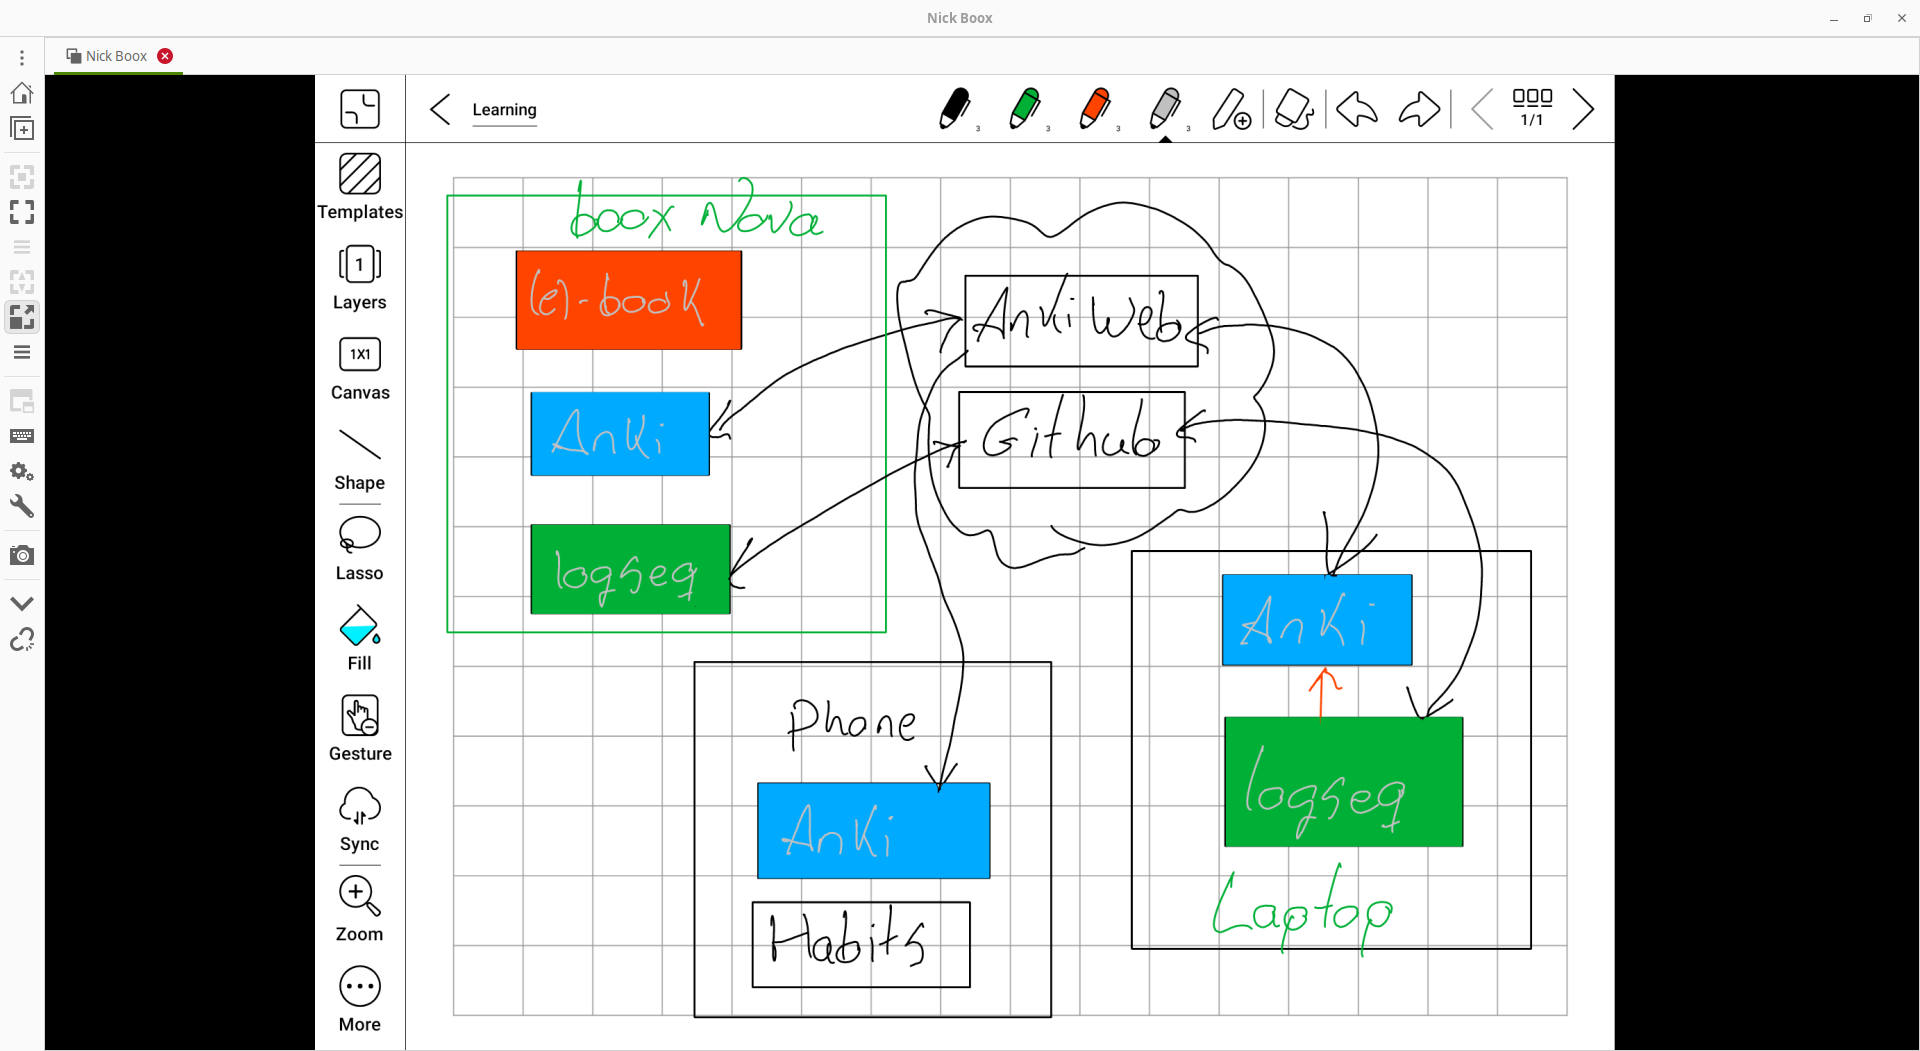 Nick Boox
Nick Boox
Learning
3
3
3
3
1/1
Templates
1
Layers
1X1
Canvas
Shape
Lasso
Fill
Gesture
Sync
Zoom
More
boox Nova
(e)-book
Anki
logseq
Anki Web
Github
Phone
Anki
Habits
Anki
logseq
Laptop